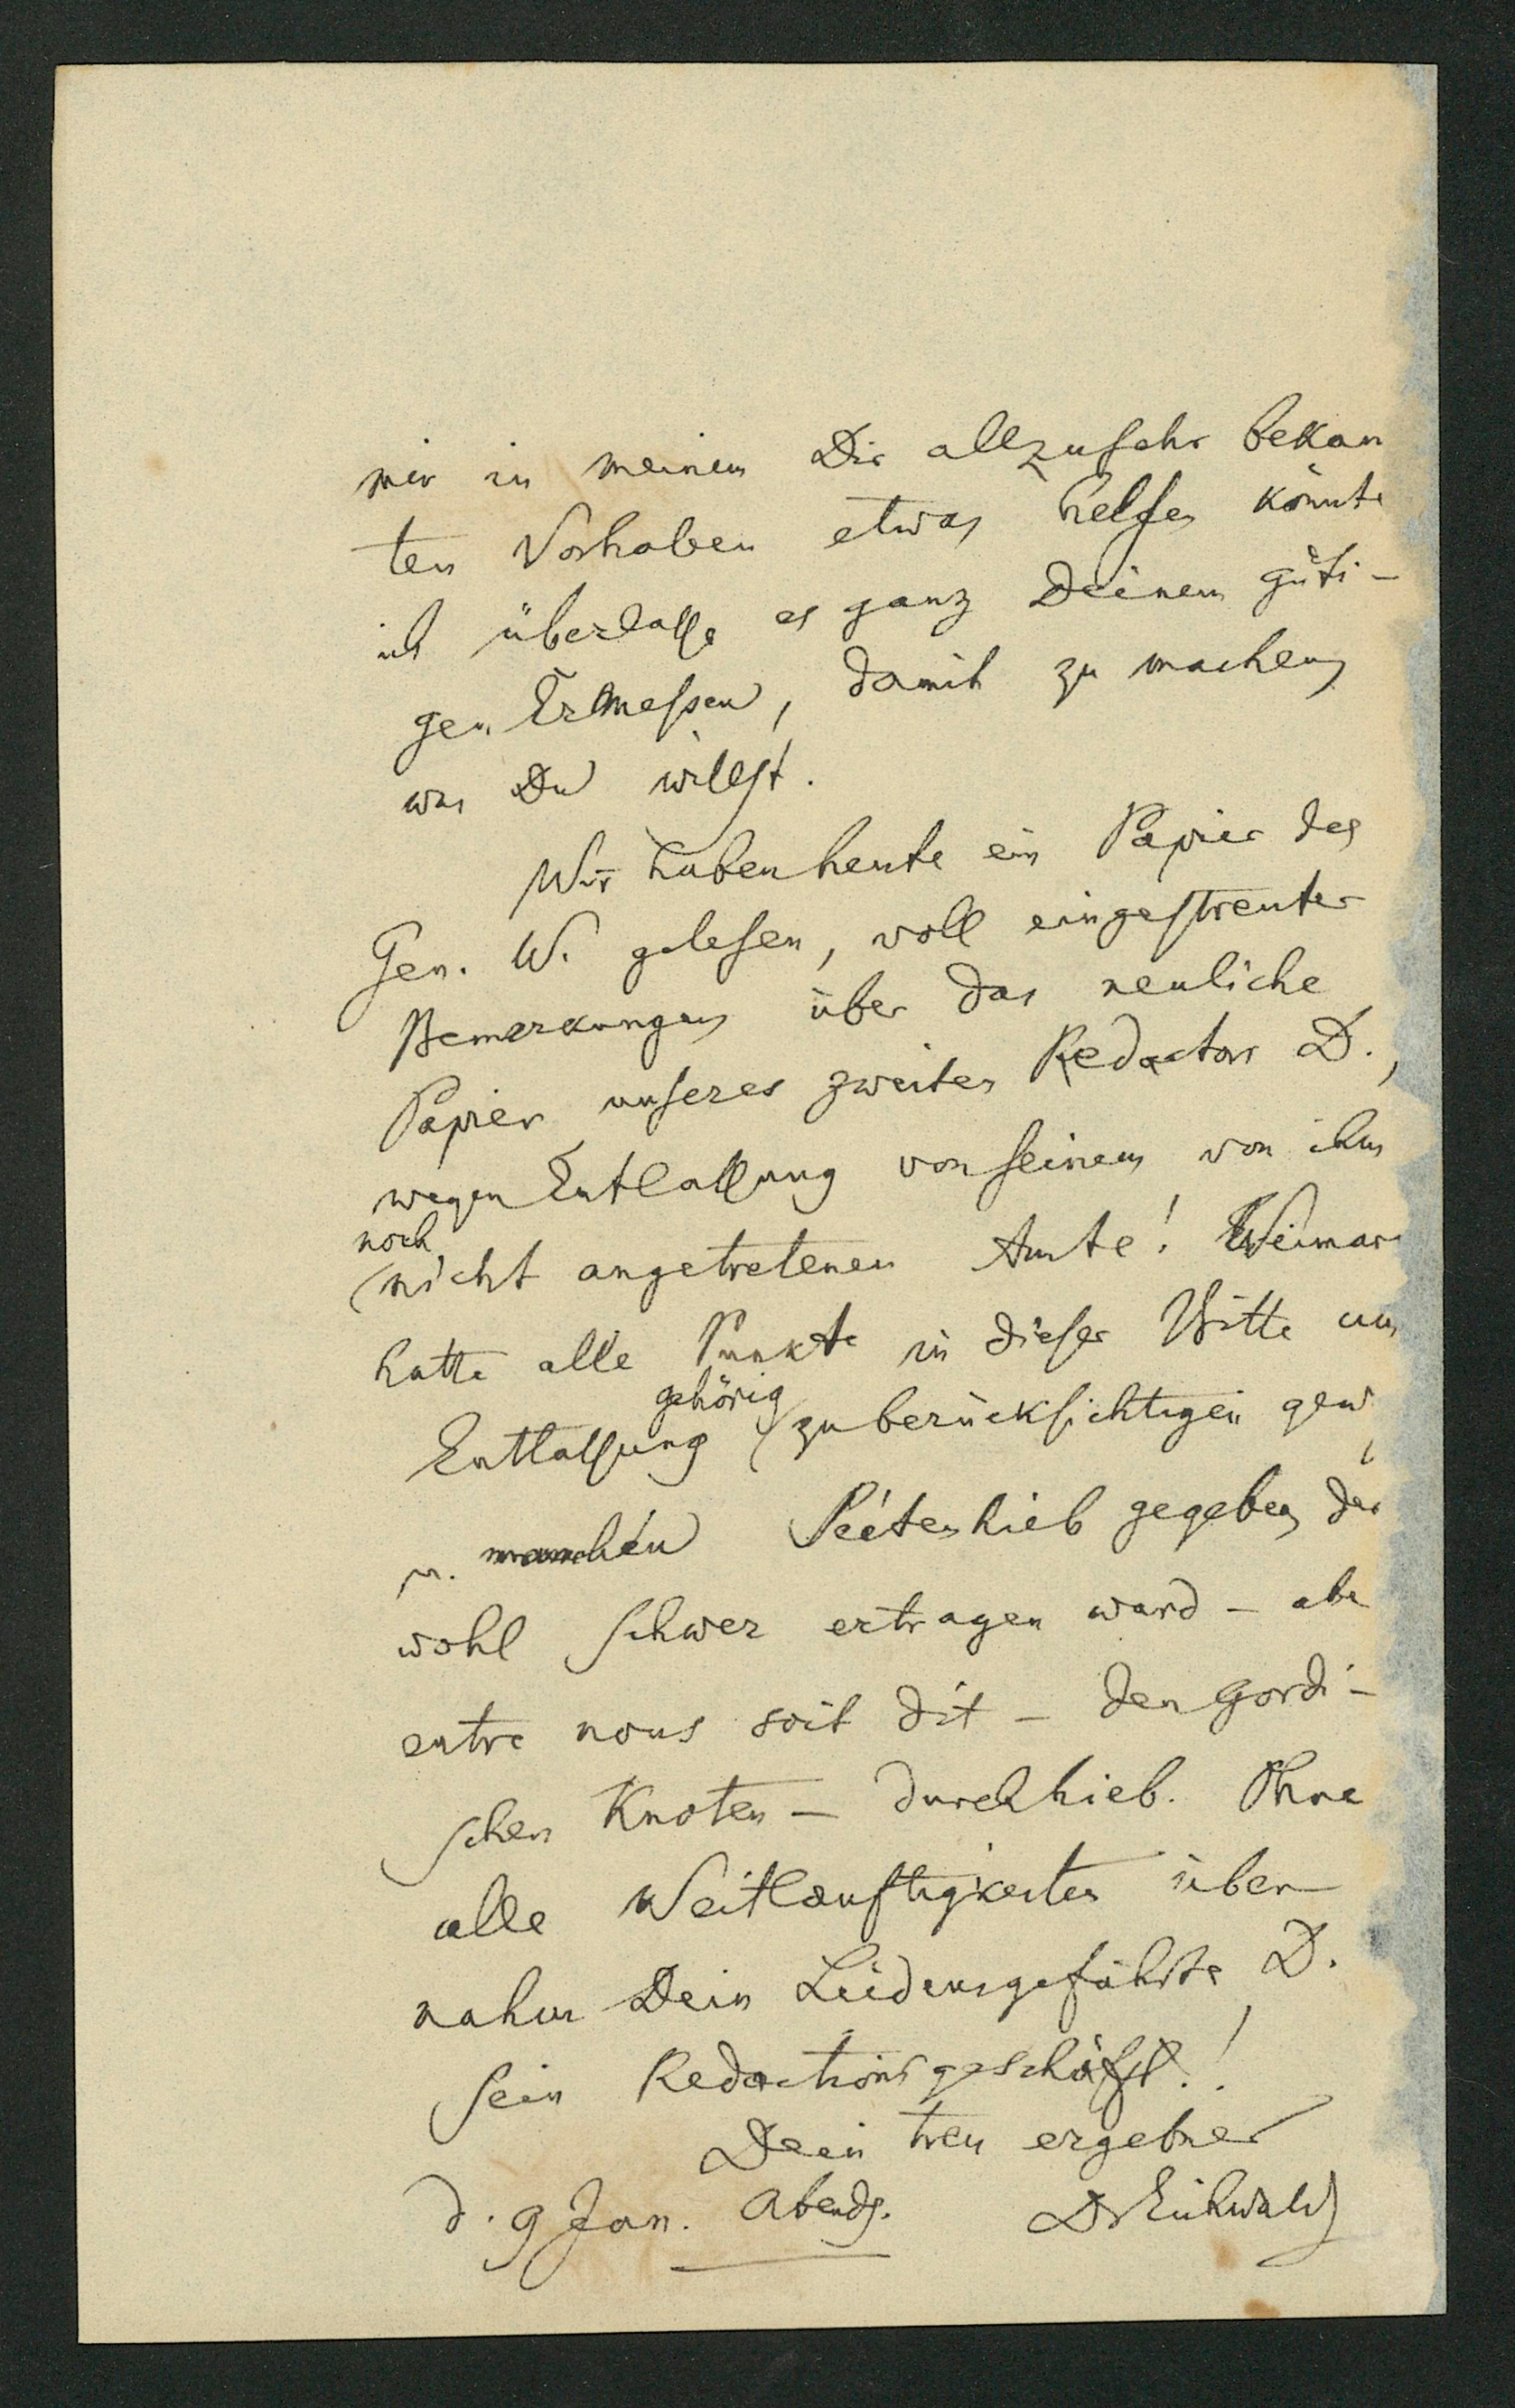 mir in meinem Dir allzusehr bekan
ten Vorhaben etwas helfen könnte
ich überlasse es ganz Deinem güti-
gen Ermessen, damit zu machen,
was Du willst.
Wir haben heute ein Papier des
Gen. W. gelesen, voll eingestreuter
Bemerkungen über das neuliche
Papier unseres zweiten Redactors D.,
wegen Entlassung von seinem von ihm
noch
nicht angetretenen Amte! Weimar
hatte alle Punkte in dieser Bitte um
gehörig
Entlassung zu berücksichtigen
u. manchen Seitenhieb gegeben, der
wohl schwer ertragen ward - abe
entre nous soit dit - den Gordi-
schen Knoten - durchhieb. Ohne
alle Weitläuftigkeiten über-
nahm Dein Leidensgefährte D.
sein Redactionsgeschäft!
Dein treu ergebner
d. 9 Jan. Abends. Dr Eichwald